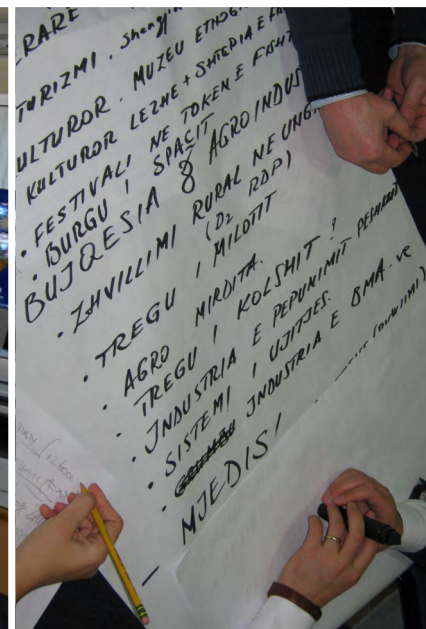 RARE
TURIZMI. Shengjin
ULTUROR. MUZEU ETNOG
KULTUROR LEZHE + SHTEPIA E FI
• FESTIVALI NE TOKEN E FISHT
• BURGU I SPAÇIT
BUJQESIA & AGROINDUS
• ZHVILLIMI RURAL NE UNG
(D2 RDP)
• TREGU I MILOTIT
• AGRO MIRDITA.
• TREGU I KOLSHIT ?
• INDUSTRIA E PEPUNIMIT
• SISTEMI I UJITJES.
• INDUSTRIA E BMA-ve
– MJEDISI